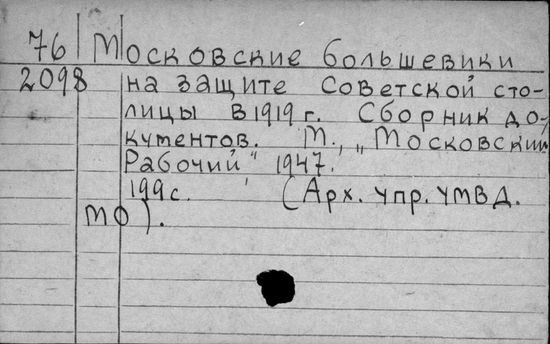 76 Московские большевики
2098 на защите Советской сто-
лицы в 1919 г. Сборник до-
кументов. М., „Московский
Рабочий" 1947.
199 с. (Арх. упр. УМВД.
МО).